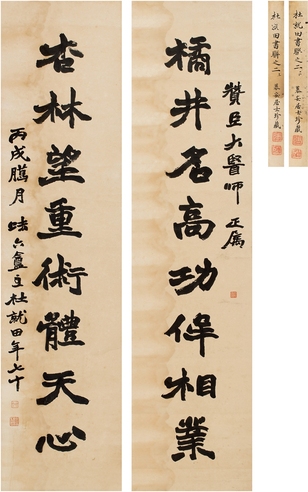 橘井名高功侔相業
贊臣大醫師 正屬
杏林望重術體天心
丙戌臘月 味六盦主杜就田年七十
杜就田書聯之二
某安居士珍藏
杜就田書聯之二
某安居士珍藏